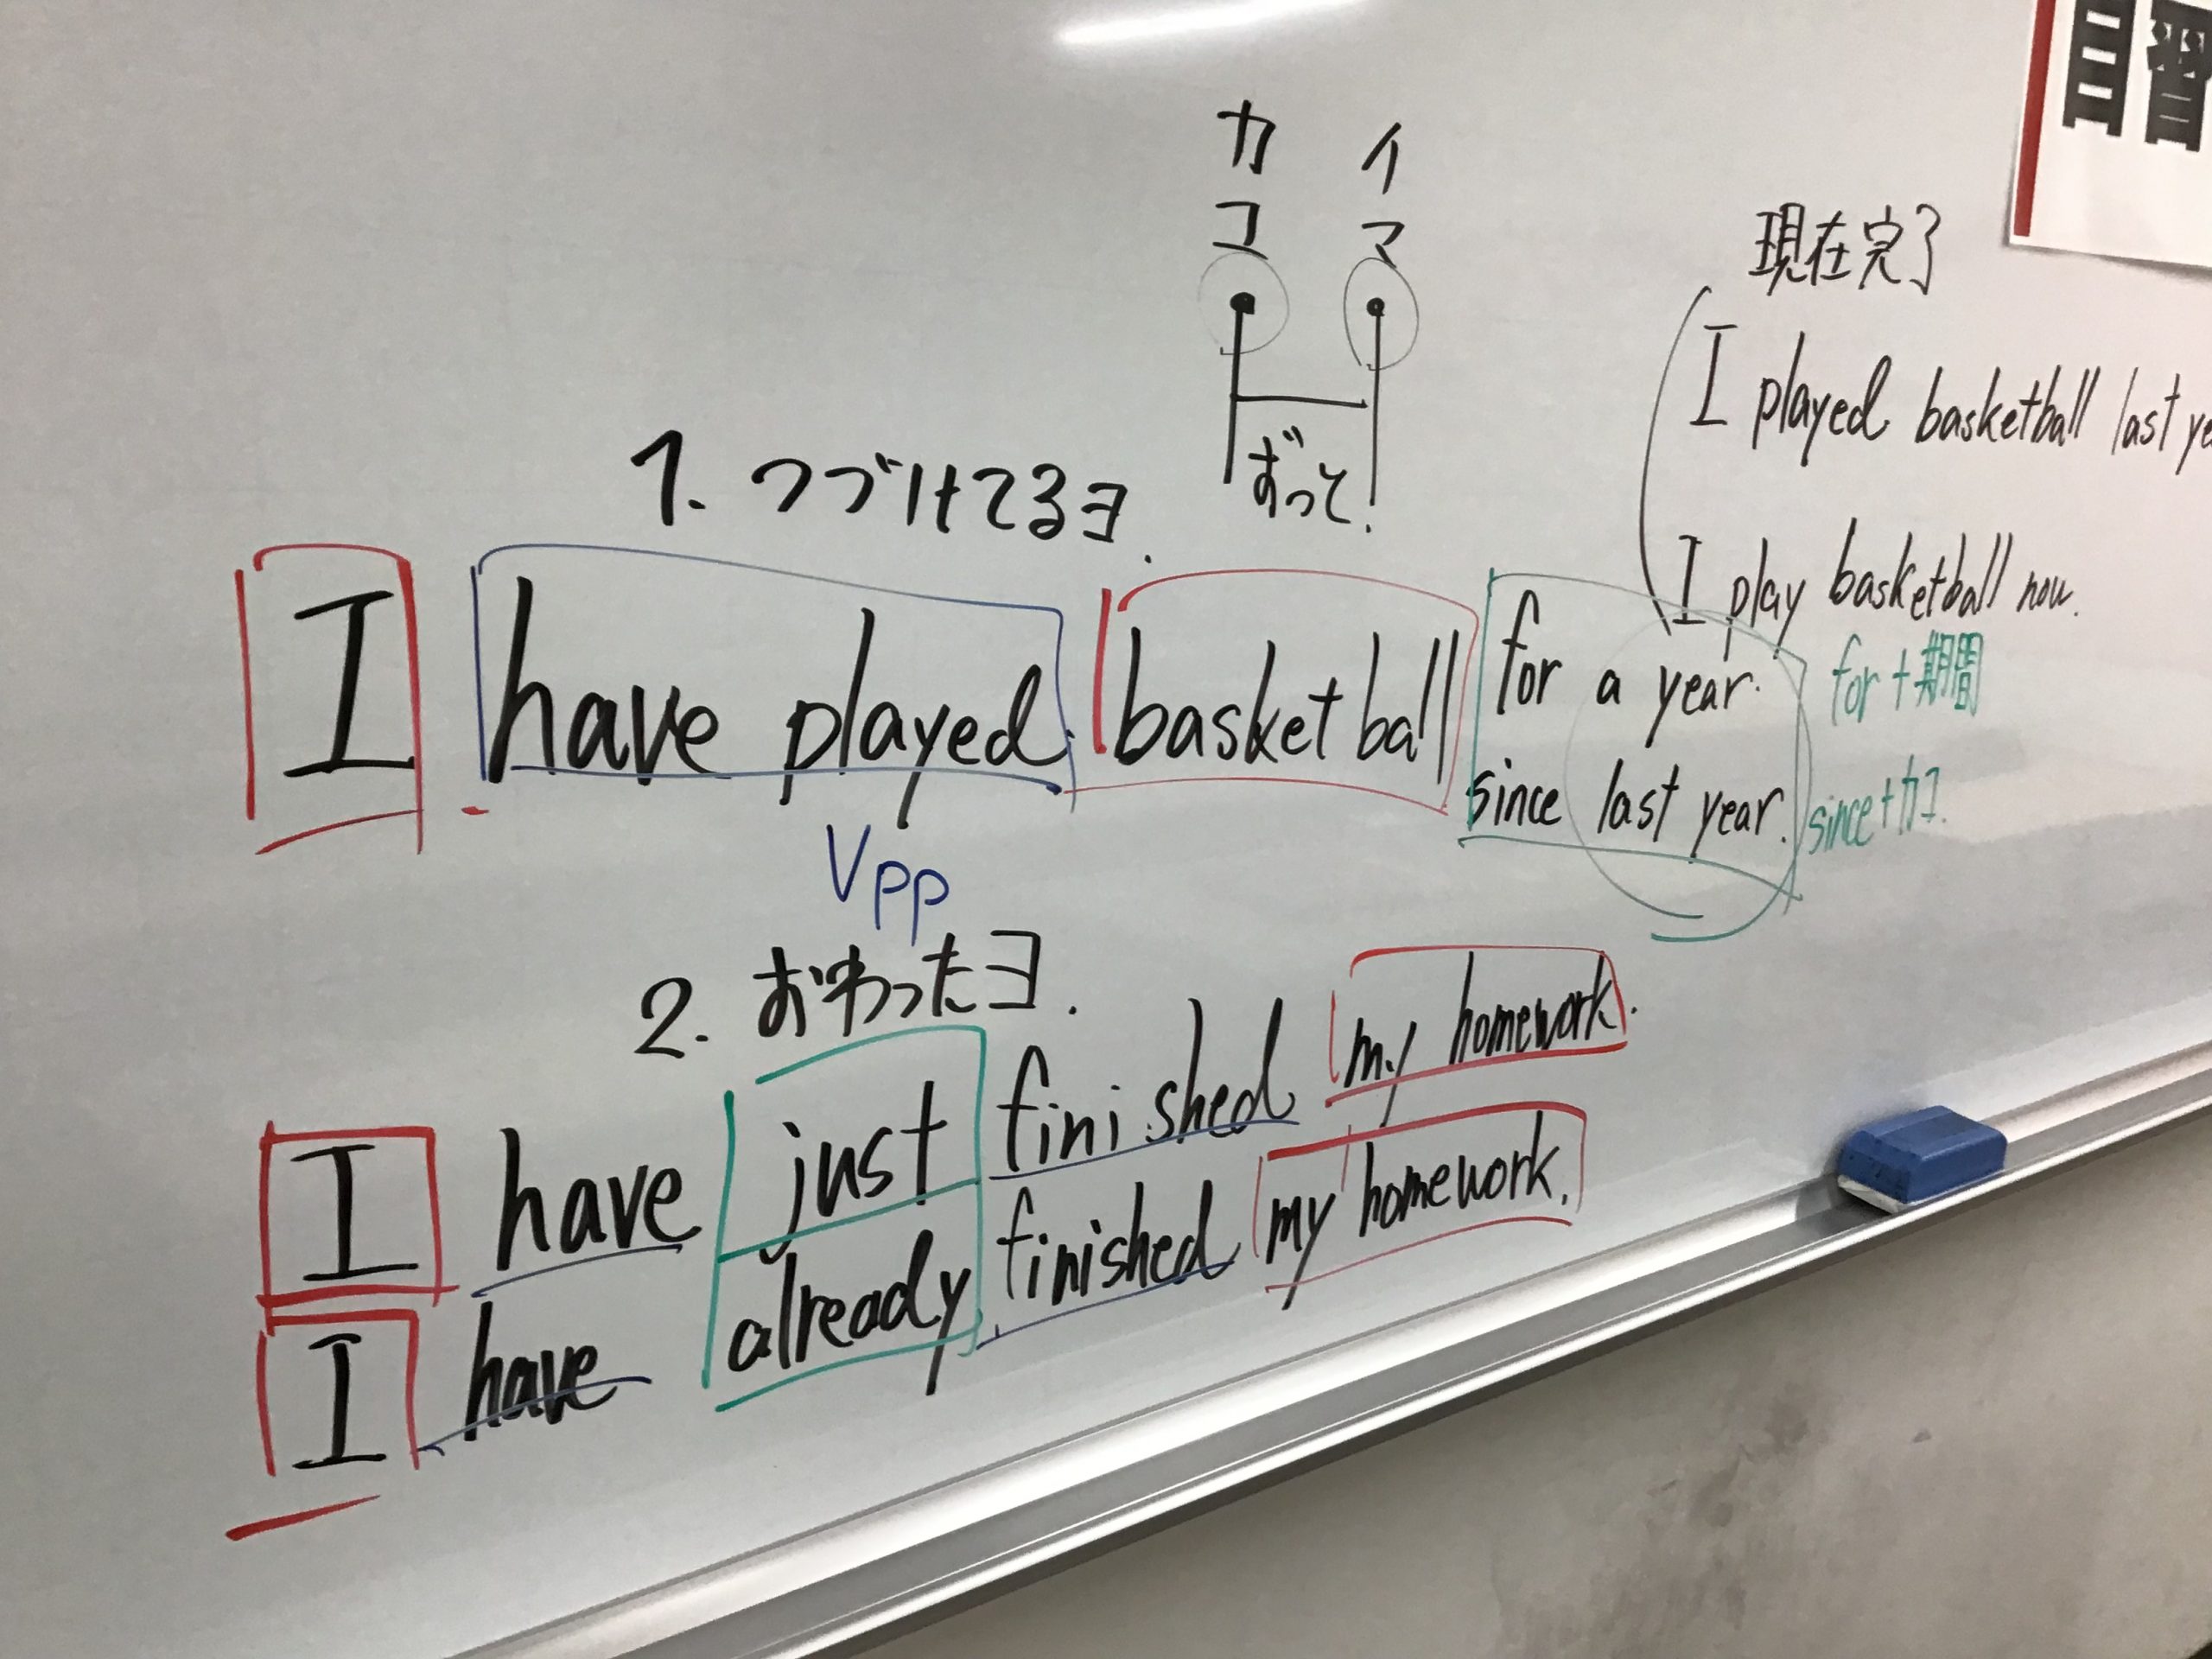 自習
カコ
イマ
ずっと!
現在完了
I played basketball last ye
I play basketball now.
1. つづけてるヨ.
I have played basketball for a year.
since last year.
for+期間
since+カコ.
Vpp
2. おわったヨ.
I have just finished my homework.
I have already finished my homework.